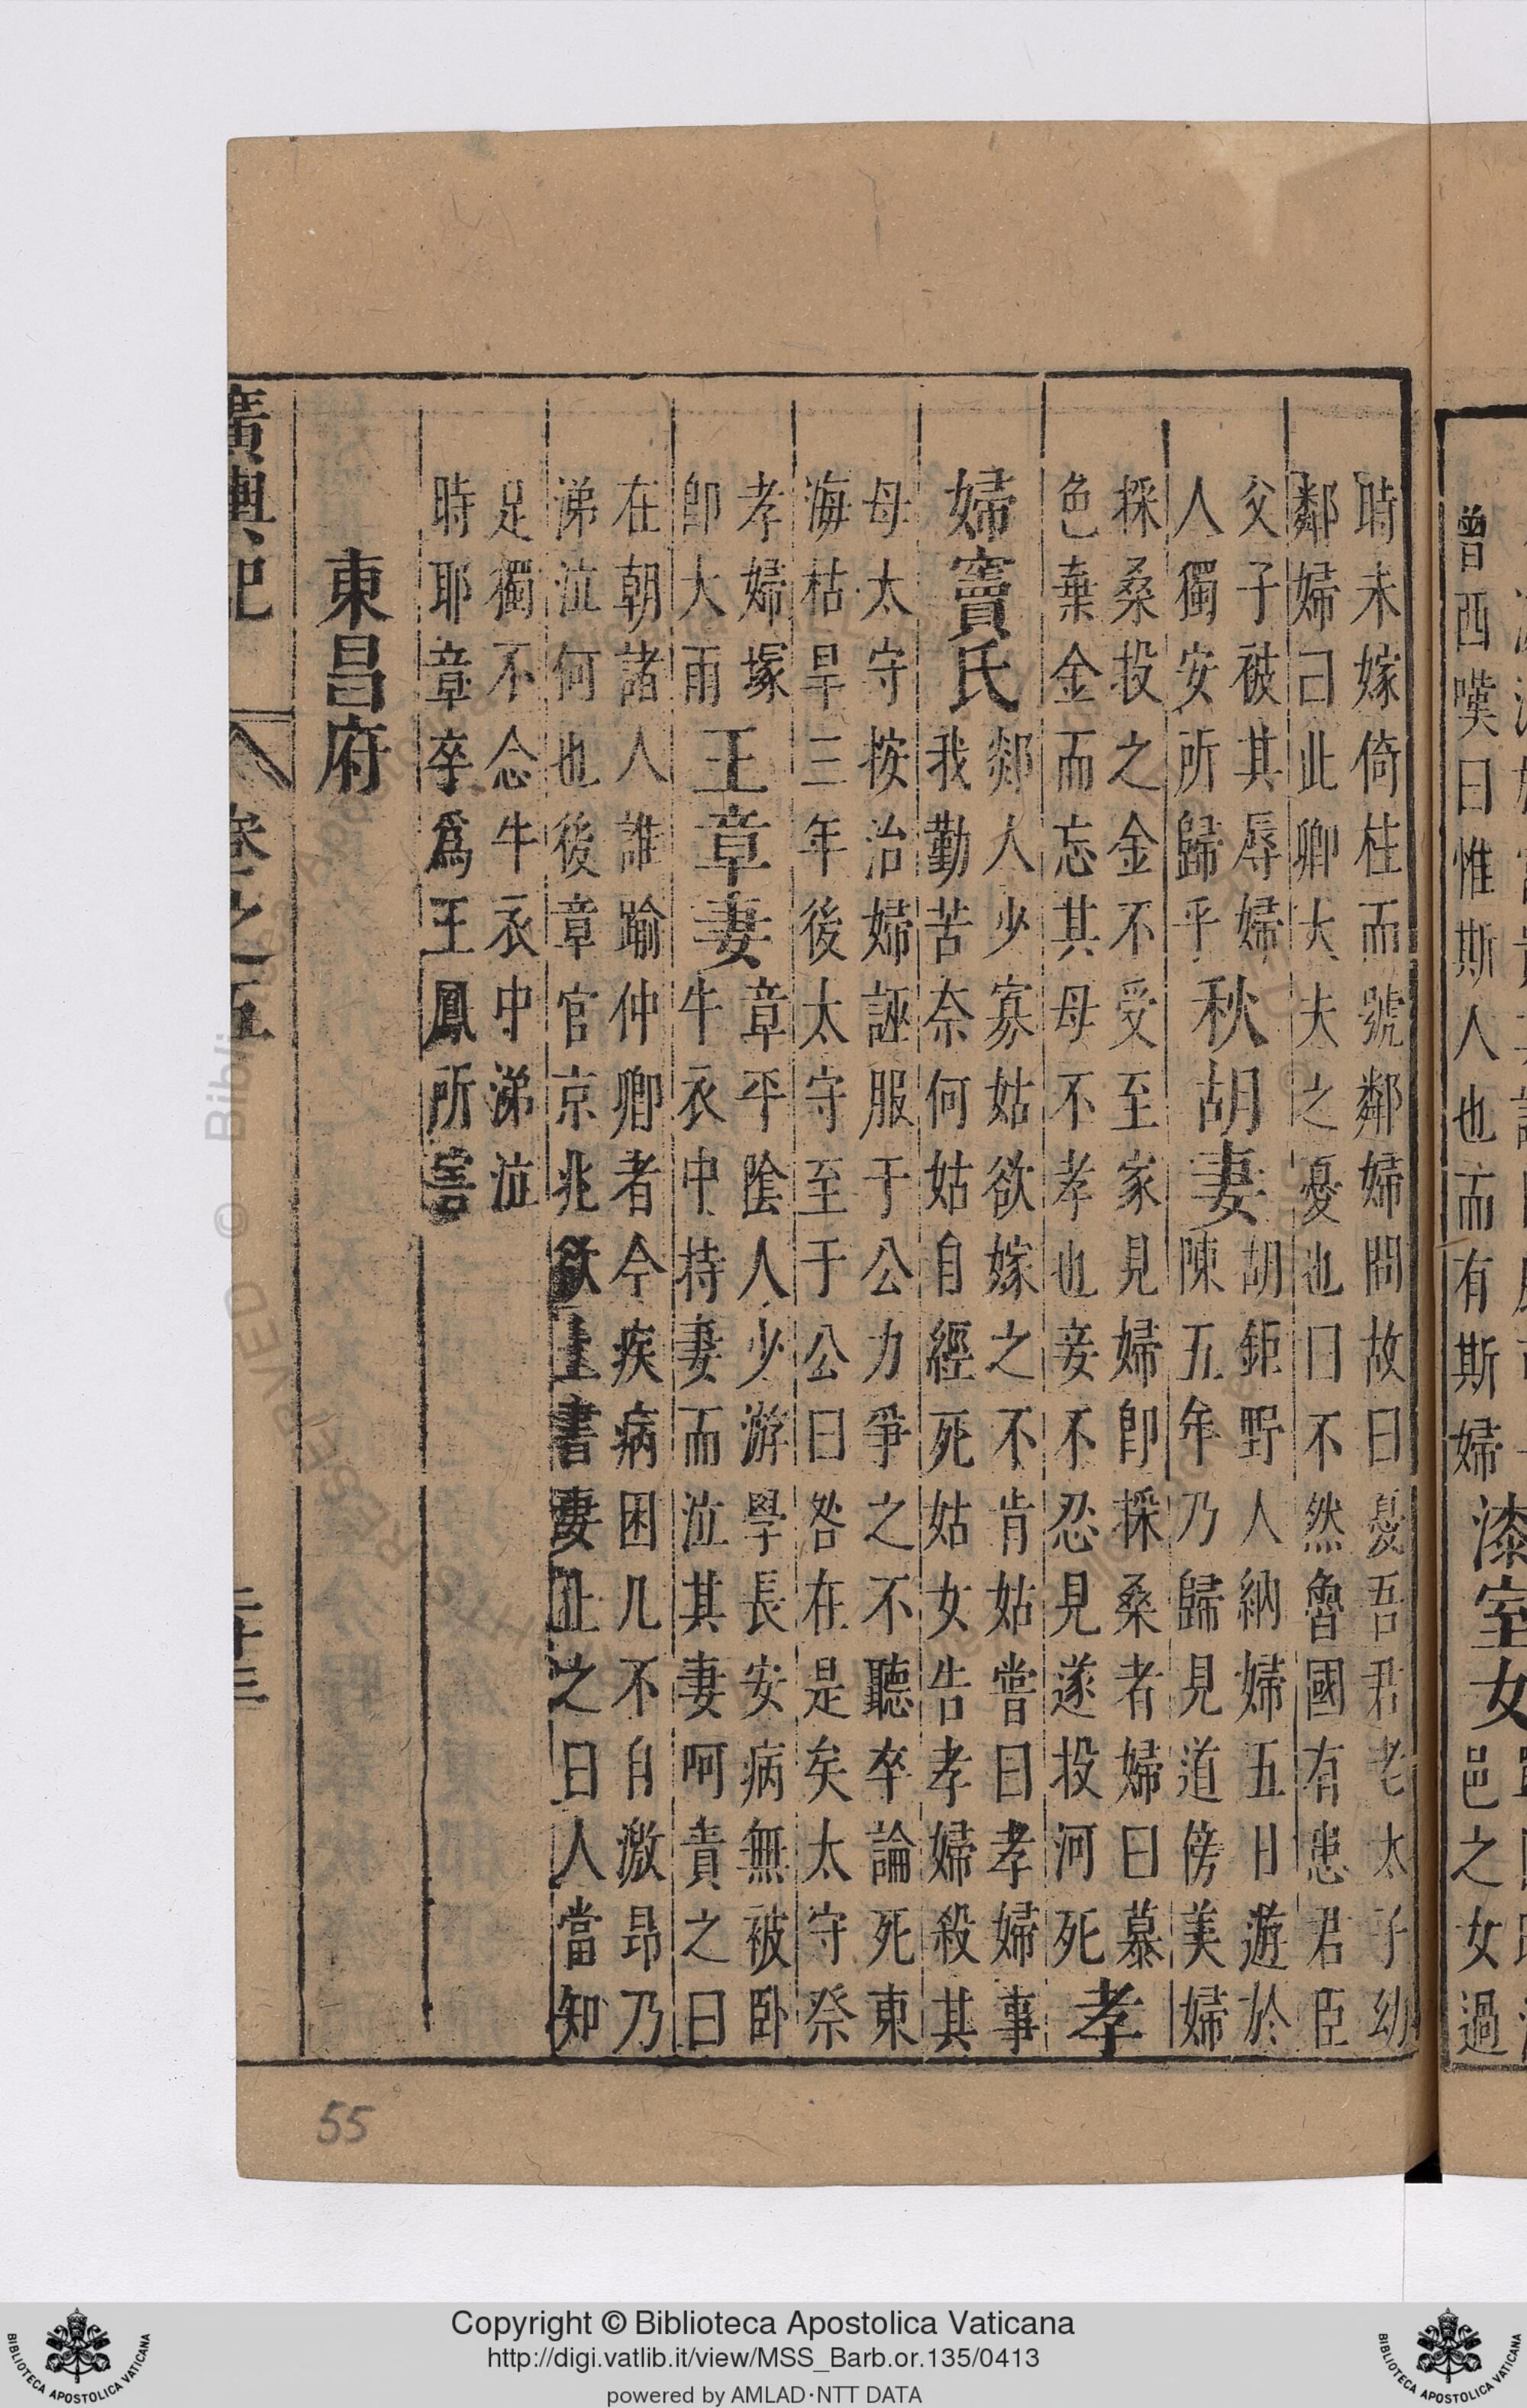 曾西嘆曰惟斯人也而有斯婦
漆室女
邑之女過
時未嫁倚柱而號鄰婦問故曰憂吾君老太子幼
鄰婦曰此卿大夫之憂也曰不然魯國有患君臣
父子被其辱婦
人獨安所歸乎
秋胡妻
胡鉅野人納婦五日遊於
陳五年乃歸見道傍美婦
採桑投之金不受至家見婦卽採桑者婦曰慕
色棄金而忘其母不孝也妾不忍見遂投河死
孝
婦竇氏
郯人少寡姑欲嫁之不肯姑嘗目孝婦事
我勤苦奈何姑自經死姑女告孝婦殺其
母太守按治婦誣服于公力爭之不聽卒論死東
海枯旱三年後太守至于公曰咎在是矣太守祭
孝婦塚
卽大雨
王章妻
章平陰人少游學長安病無被卧
牛衣中持妻而泣其妻呵責之曰
在朝諸人誰踰仲卿者今疾病困几不自激昂乃
涕泣何也後章官京兆欲上書妻止之曰人當知
足獨不念牛衣中涕泣
時耶章卒爲王鳳所害
東昌府
廣輿記 卷之五 二十三
55
Copyright © Biblioteca Apostolica Vaticana
http://digi.vatlib.it/view/MSS_Barb.or.135/0413
powered by AMLAD·NTT DATA
BIBLIOTECA APOSTOLICA VATICANA
BIBLIOTECA APOSTOLICA VATICANA